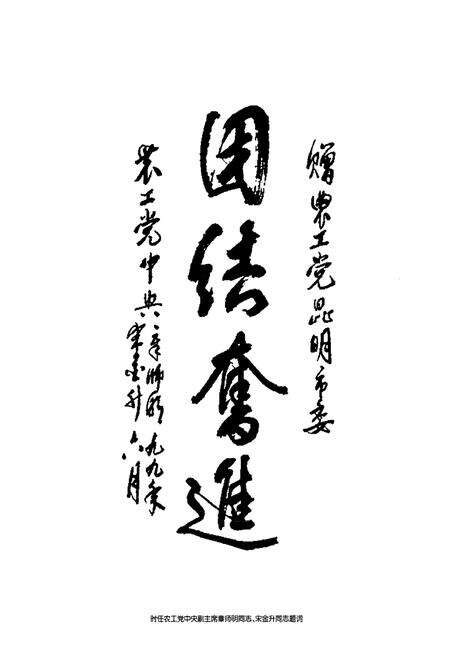 赠農工党昆明市委
團结奮進
農工党中央章师明
宋金升
九九年
六月
时任农工党中央副主席章师明同志、宋金升同志题词